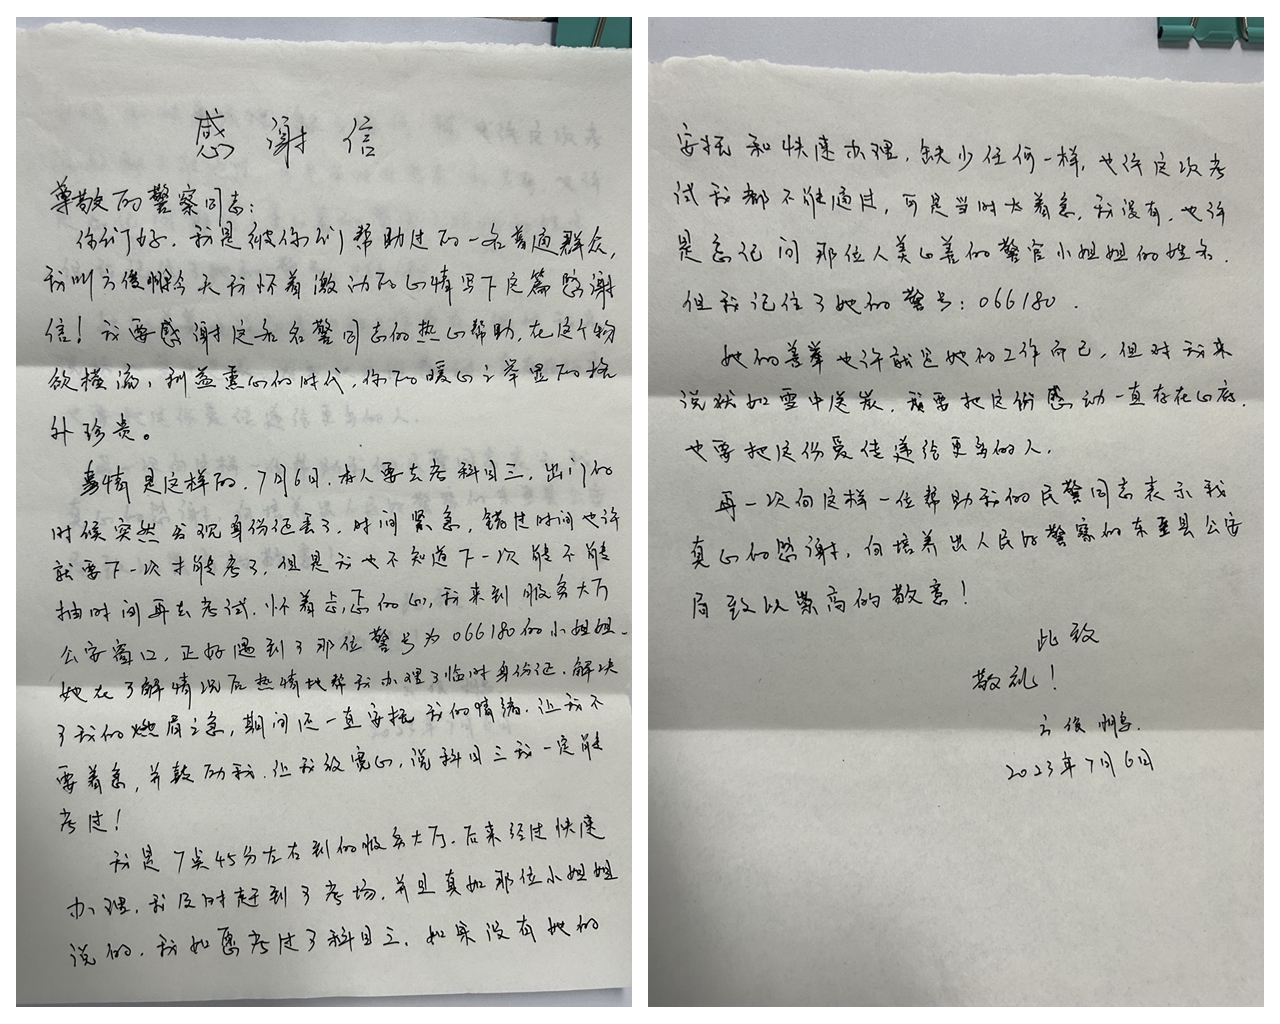 感谢信
尊敬的警察同志:
你们好。我是被你们帮助过的一名普通群众,
我叫方俊鹏今天我怀着激动的心情写下这篇感谢
信!我要感谢这和名警同志的热心帮助,在这个物
欲横流、利益熏心的时代,你的暖心之举显的格
外珍贵。
事情是这样的,7月6日,本人要去考科目三,出门的
时候突然发现身份证丢了,时间紧急,错过时间也许
就要下一次才能考了,但是我也不知道下一次能不能
抽时间再去考试,怀着忐忑的心,我来到服务大厅
公安窗口,正好遇到了那位警号为066180的小姐姐。
她在了解情况后热情地帮我办理了临时身份证,解决
了我的燃眉之急,期间还一直安抚我的情绪,让我不
要着急,并鼓励我,让我放宽心,说科目三我一定能
考过!
我是7点45分左右到的服务大厅,后来经过快速
办理,我及时赶到了考场,并且真如那位小姐姐
说的,我如愿考过了科目三,如果没有她的
安抚和快速办理,缺少任何一样,也许这次考
试我都不能通过,可是当时太着急,我没有,也许
是忘记问那位人美心善的警官小姐姐的姓名,
但我记住了她的警号:066180.
她的善举也许就是她的工作而已,但对我来
说犹如雪中送炭,我要把这份感动一直存在心底,
也要把这份爱传递给更多的人.
再一次向这样一位帮助我的民警同志表示我
真心的感谢,向培养出人民的好警察的东至县公安
局致以崇高的敬意!
此致
敬礼!
方俊鹏.
2023年7月6日